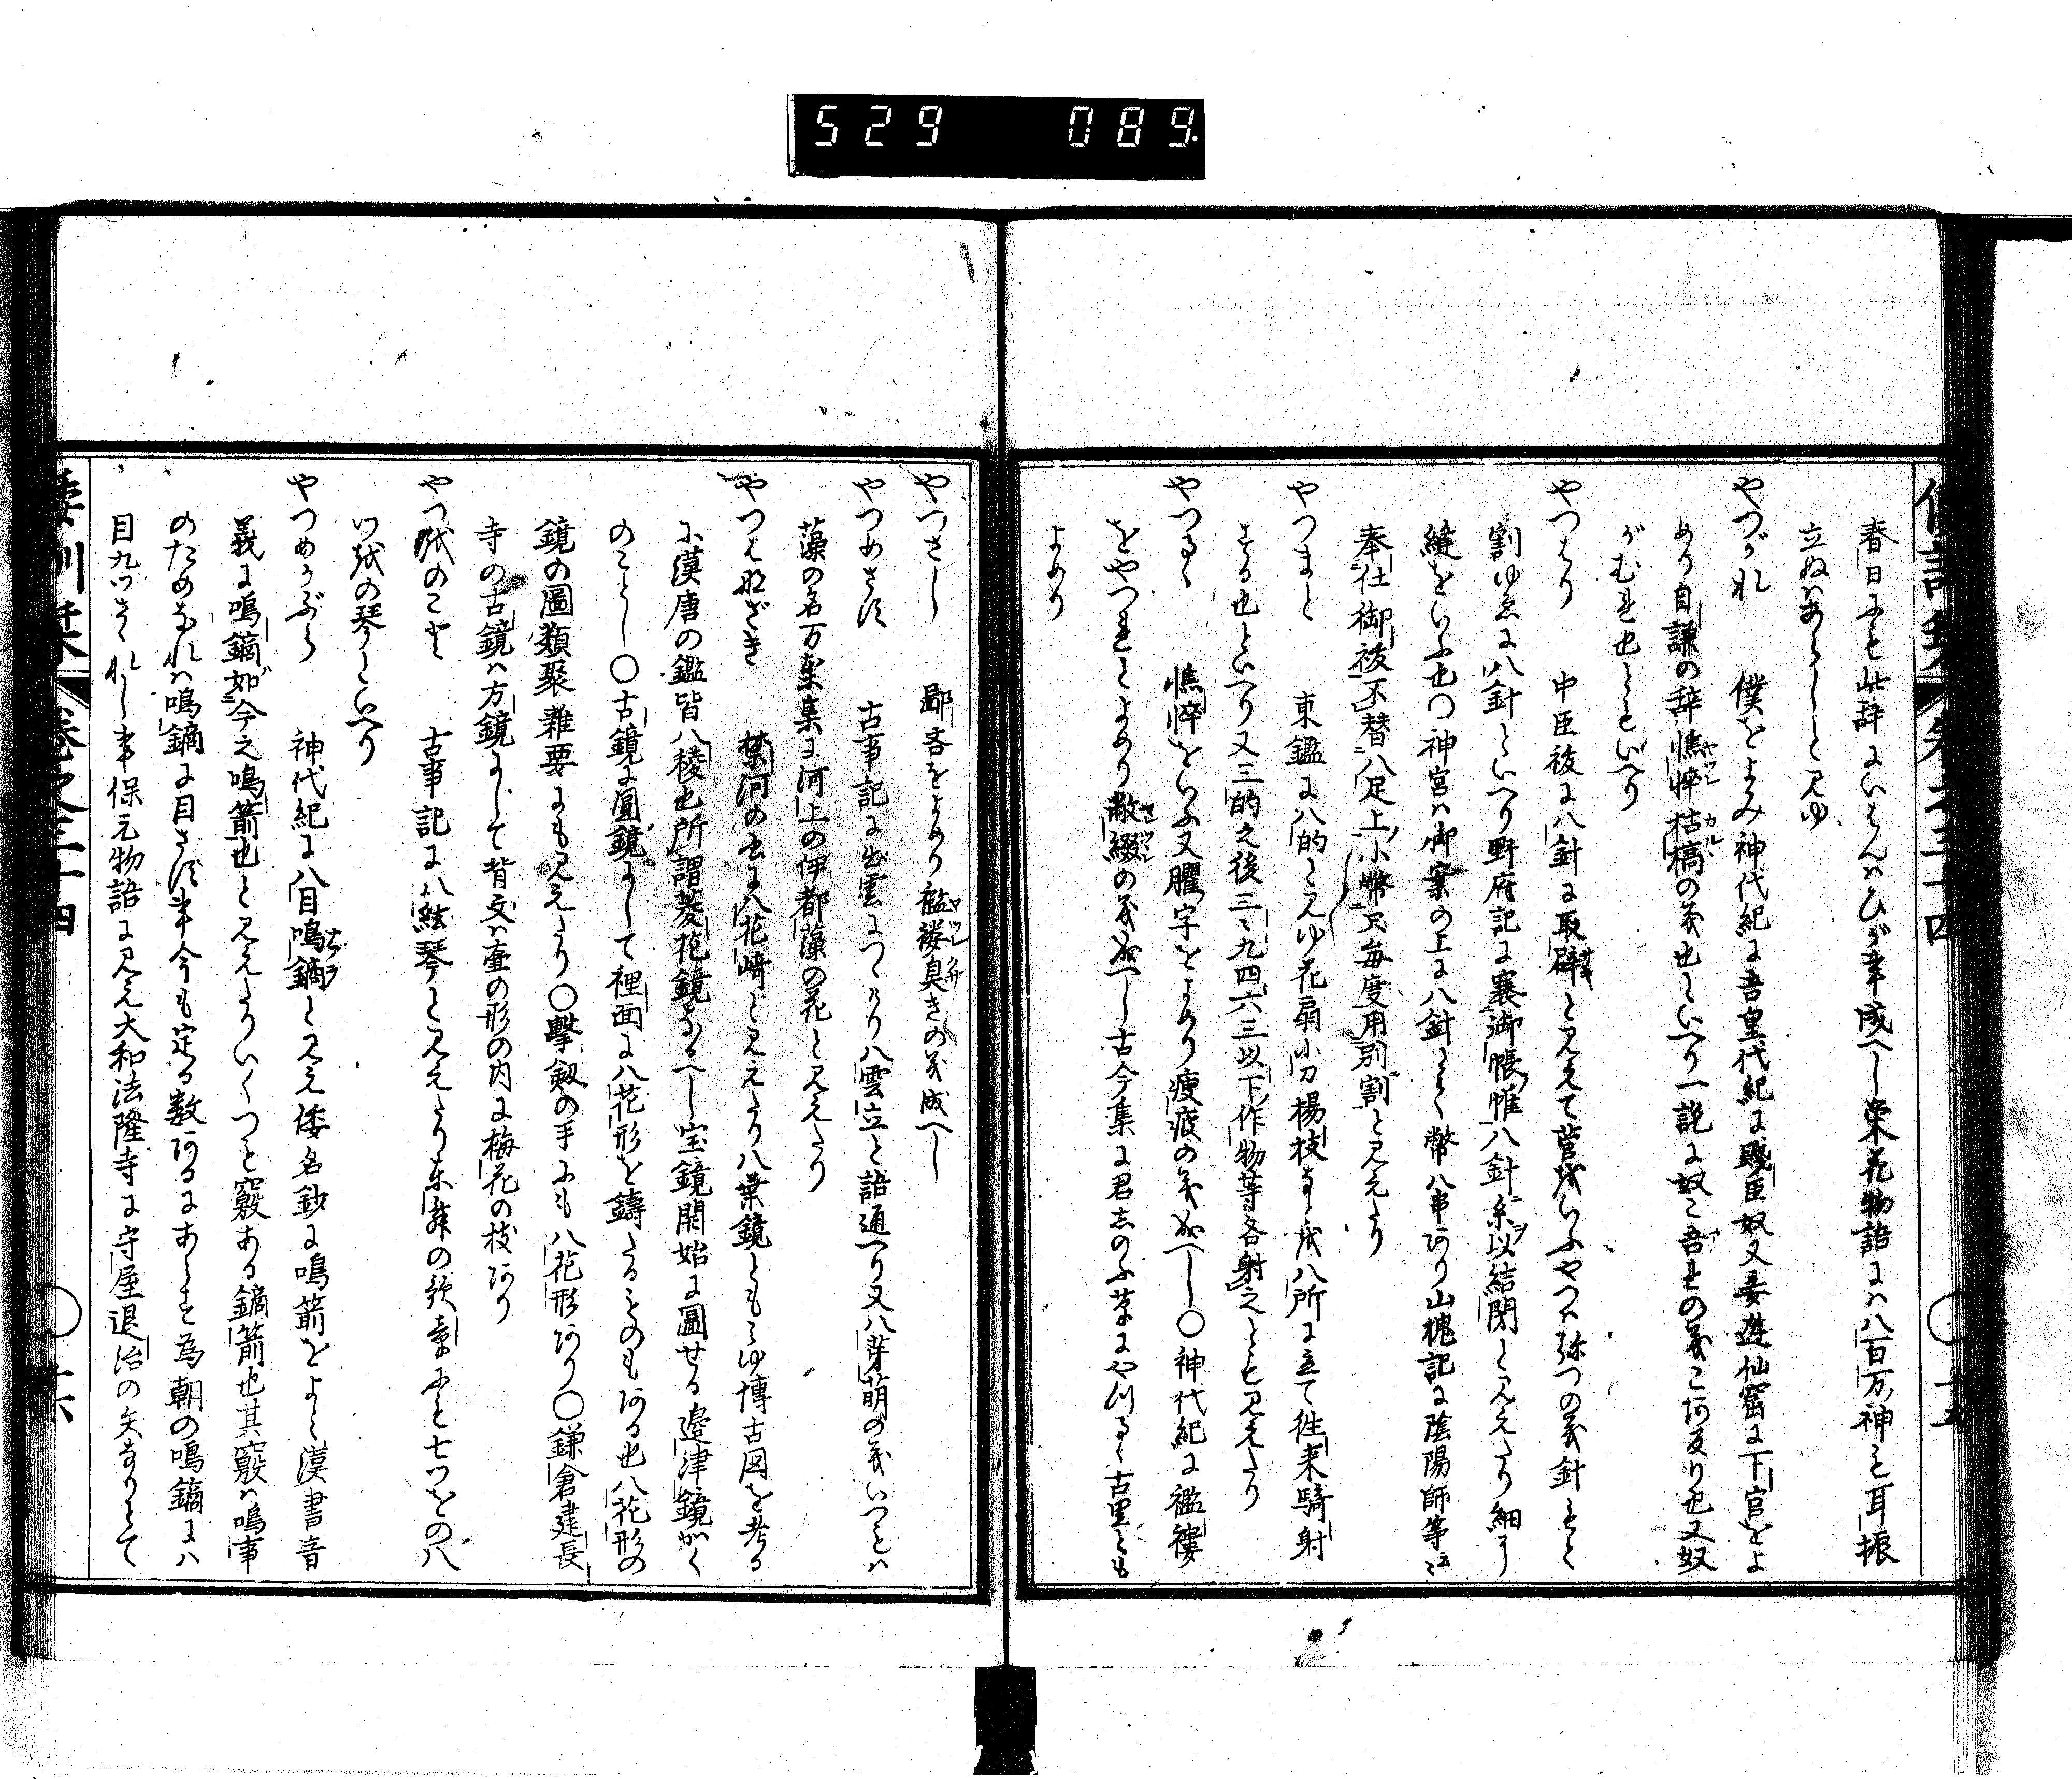 529 089
春日にも此辞にいはんはひが事成へし栄花物語には八百万神も耳振
立ぬはあらしと見ゆ
やつがれ 僕をよみ神代紀に吾皇代紀に賤臣奴又妾遊仙窟に下官をよ
めり自謙の辞憔悴枯槁の義也といへり一説に奴こ吾との義こあ反り也又奴
がむれ也ともいへり
やつはり 中臣祓に八針に取辟と見えて菅をいふやつは弥つの義針はとく
割ゆゑに八針といへり野府記に褰御帳帷八針糸以結閉と見えたり細う
縫をいふ也〇神宮は御案の上に八針とく幣八串あり山槐記に陰陽師等云
奉仕御祓不替八足上小幣只毎度用別割と見えたり
やつまと 東鑑に八的と見ゆ花扇小刀楊枝などを八所に立て往来騎射
する也といへり又三的之後三々九四六三以下作物等各射之とも見えたり
やつるゝ 憔悴をいふ又臞字をよめり痩疲の義なへし〇神代紀に襤褸
をやつれとよめり敝綴の義なへし古今集に君しのふ草にやつるゝ古里とも
よめり
やつさし 鄙吝をよめり襤褸臭きの義成へし
やつめさす 古事記に出雲につゝけり八雲立と語通へり又八芽萌の義いつもは
藻の名万葉集に河上の伊都藻の花と見えたり
やつはなざき 禁河の書に八花崎と見えたり八葉鏡ともみゆ博古図を考る
に漢唐の鑑皆八稜也所謂菱花鏡なるへし宝鏡開始に圖せる邊津鏡かく
のことし〇古鏡に圓鏡にして裡面に八花形を鑄たるものもある也八花形の
鏡の圖類聚雜要にも見えたり〇撃劔の手にも八花形あり〇鎌倉建長
寺の古鏡は方鏡にして背文は壷の形の内に梅花の枝あり
やつをのこと 古事記に八絃琴と見えたり東舞の歌章にも七つをの八
つをの琴といへり
やつめかぶら 神代紀に八目鳴鏑と見え倭名鈔に鳴箭をよみ漢書音
義に鳴鏑如今之鳴箭也と見えたりいくつも竅ある鏑箭也其竅は鳴事
のためなれは鳴鏑に目さす事今も定る数あるにあらす為朝の鳴鏑には
目九つさゝれし事保元物語に見え大和法隆寺に守屋退治の矢なりとて